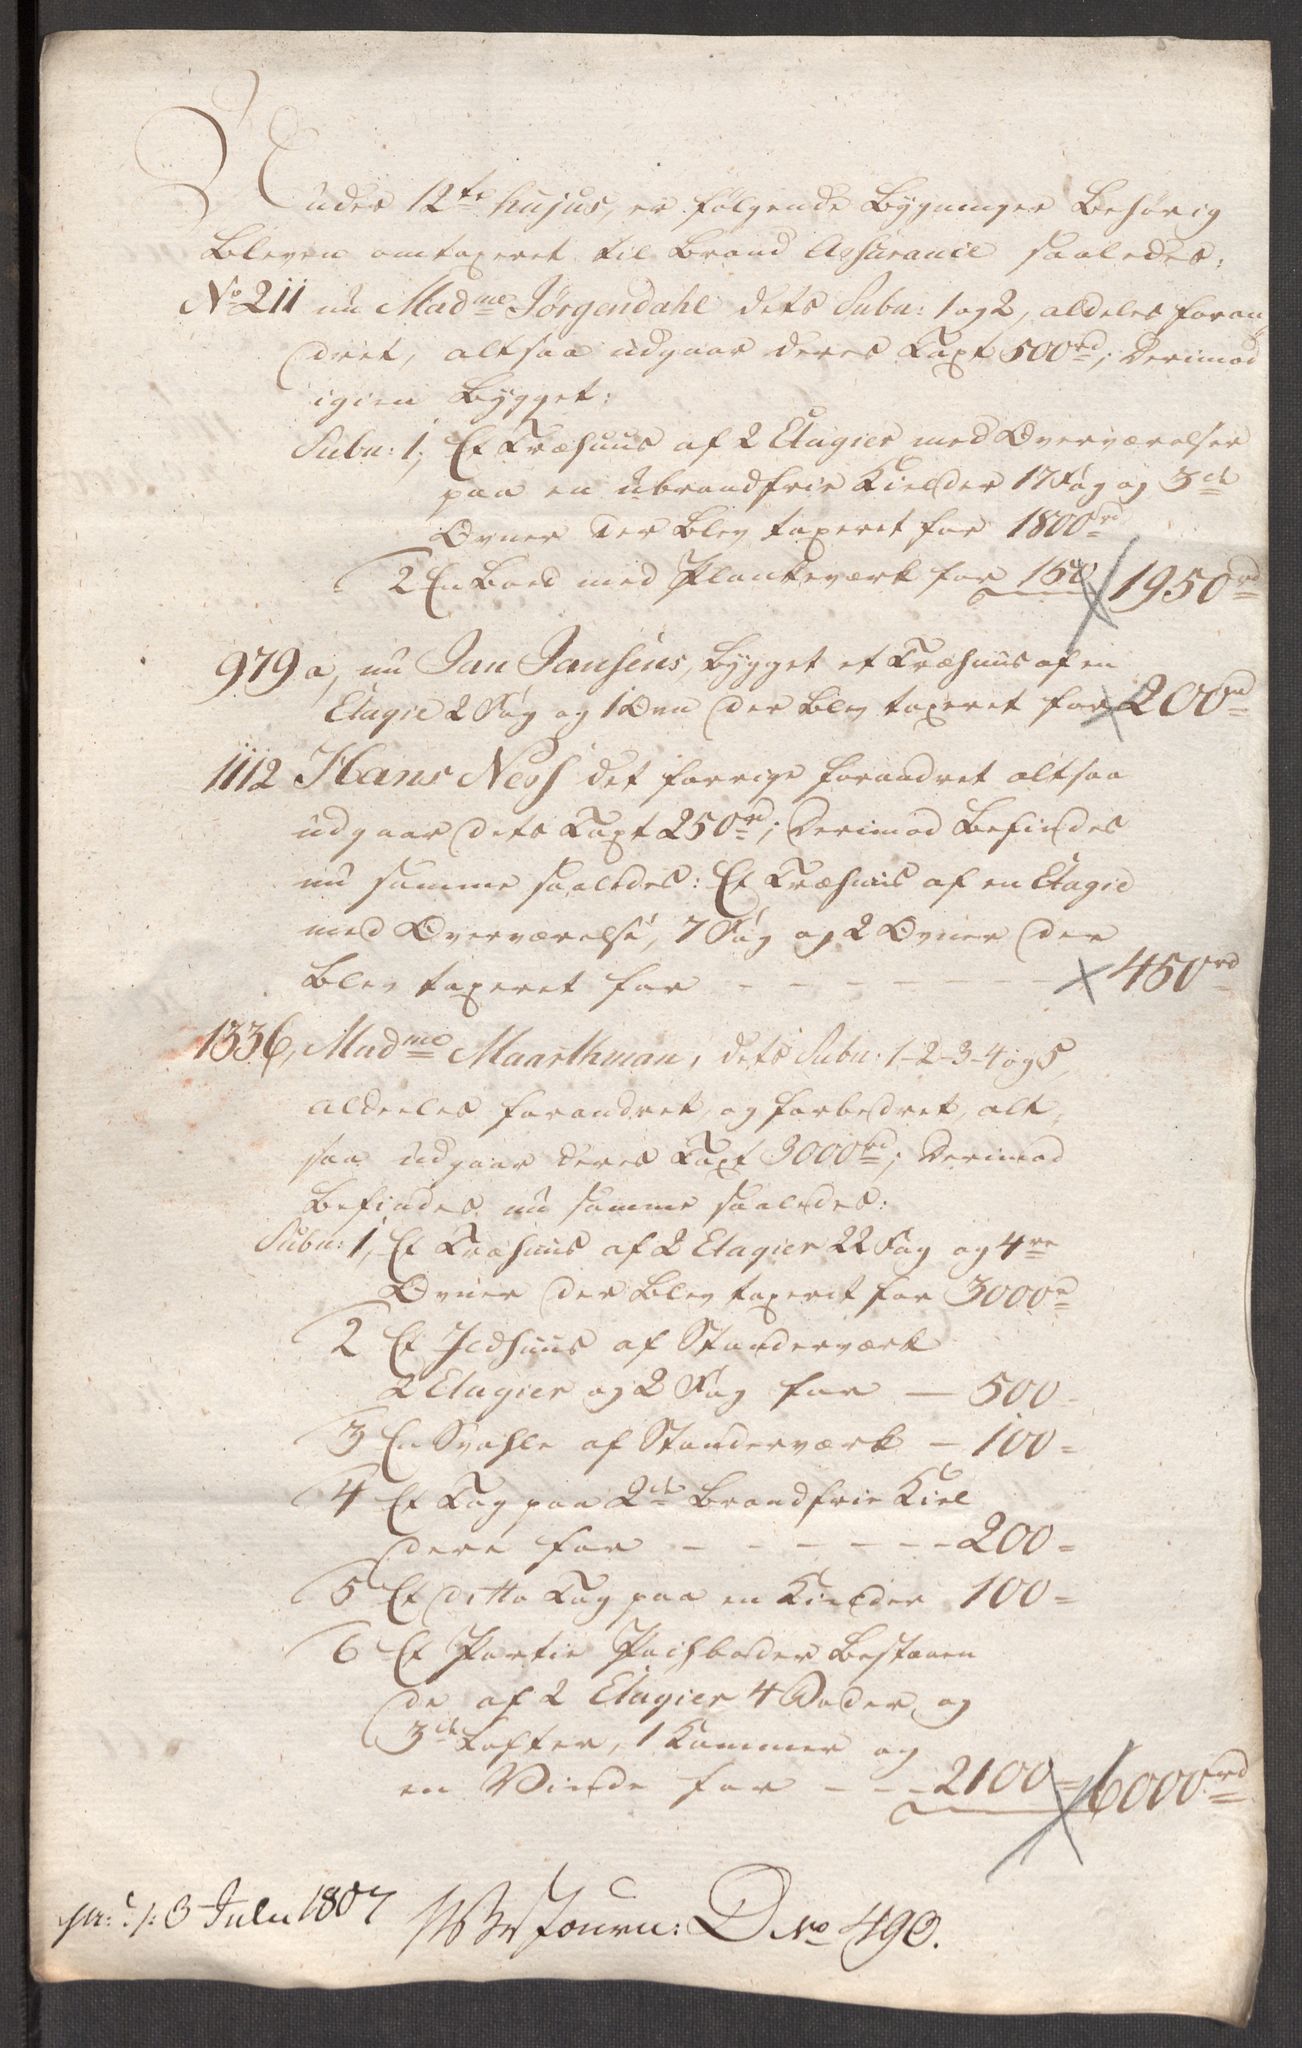 Under 12te hujus, er følgende Bygninger Behørig
Bleven omtaxeret til Brand Assurance saaledes:
No 211 nu Madme Jörgendahl dets Subn: 1 og 2, aldeles foran-
dret, altsaa udgaar deres Taxt 500rd; Derimod
igien Bygget:
Subn: 1, Et Træhuus af 2 Etagier med Overværelser
paa en ubrandfrie Kielder 17 Fag og 3de
Ovner der blev taxeret for 1800rd
2 En Boed med Plankeværk for 150 1950rd
979 a, nu Jan Jansens, bygget et Træhuus af en
Etagie 2 Fag og 1 Ovn der blev taxeret for 200rd
1112 Hans Ness det forrige forandret altsaa
udgaar dets Taxt 250rd; Derimod Befindes
nu samme saaledes: Et Træhuus af en Etagie
med Overværelse, 7 Fag og 2 Ovner der
blev taxeret for - - - - - - - 450rd
1336, Madme Maarthman, dets Subn: 1-2-3-4 og 5,
aldeeles forandret, og forbedret, alt,
saa udgaar deres Taxt 3000rd; Derimod
Befindes nu samme saaledes:
Subn: 1, Et Træhuus af 2 Etagier 22 Fag og 4re
Ovner der blev taxeret for 3000rd
2 Et Ildhuus af Standerværk
2 Etagier og 2 Fag for — 500 -
3 En Svahle af Standerværk — 100 =
4 Et Tag paa 2de Brandfrie Kiel
dere for - - - - - - 200 =
5 Et ditto Tag paa en Kielder 100 =
6 Et Partie Pachboder Bestaaen
de af 2 Etagier 4 Boder og
3de Lofter, 1 Kammer og
en Vinde for - - - 2100 = 6000rd
3 Julii 1807 Journ: D No 490.